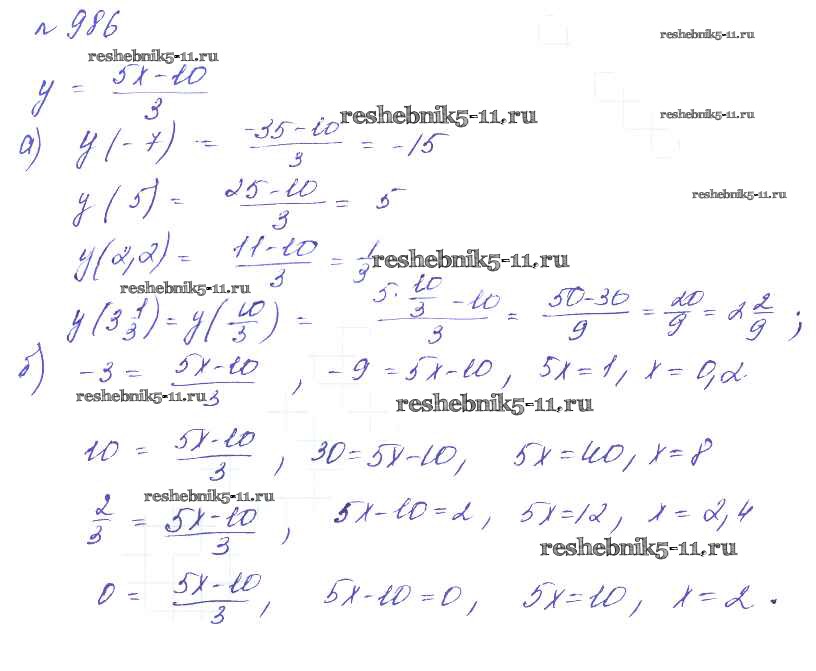 № 986
reshebnik5-11.ru
reshebnik5-11.ru
y = (5x-10)/3
reshebnik5-11.ru
reshebnik5-11.ru
а) y(-7) = (-35-10)/3 = -15
reshebnik5-11.ru
y(5) = (25-10)/3 = 5
y(2,2) = (11-10)/3 = 1/3
reshebnik5-11.ru
reshebnik5-11.ru
y(3 1/3) = y(10/3) = (5·10/3 - 10)/3 = (50-30)/9 = 20/9 = 2 2/9 ;
б) -3 = (5x-10)/3 , -9 = 5x-10, 5x=1, x=0,2
reshebnik5-11.ru
reshebnik5-11.ru
10 = (5x-10)/3 , 30=5x-10, 5x=40, x=8
reshebnik5-11.ru
2/3 = (5x-10)/3 , 5x-10=2, 5x=12, x=2,4
reshebnik5-11.ru
0 = (5x-10)/3 , 5x-10=0, 5x=10, x=2.